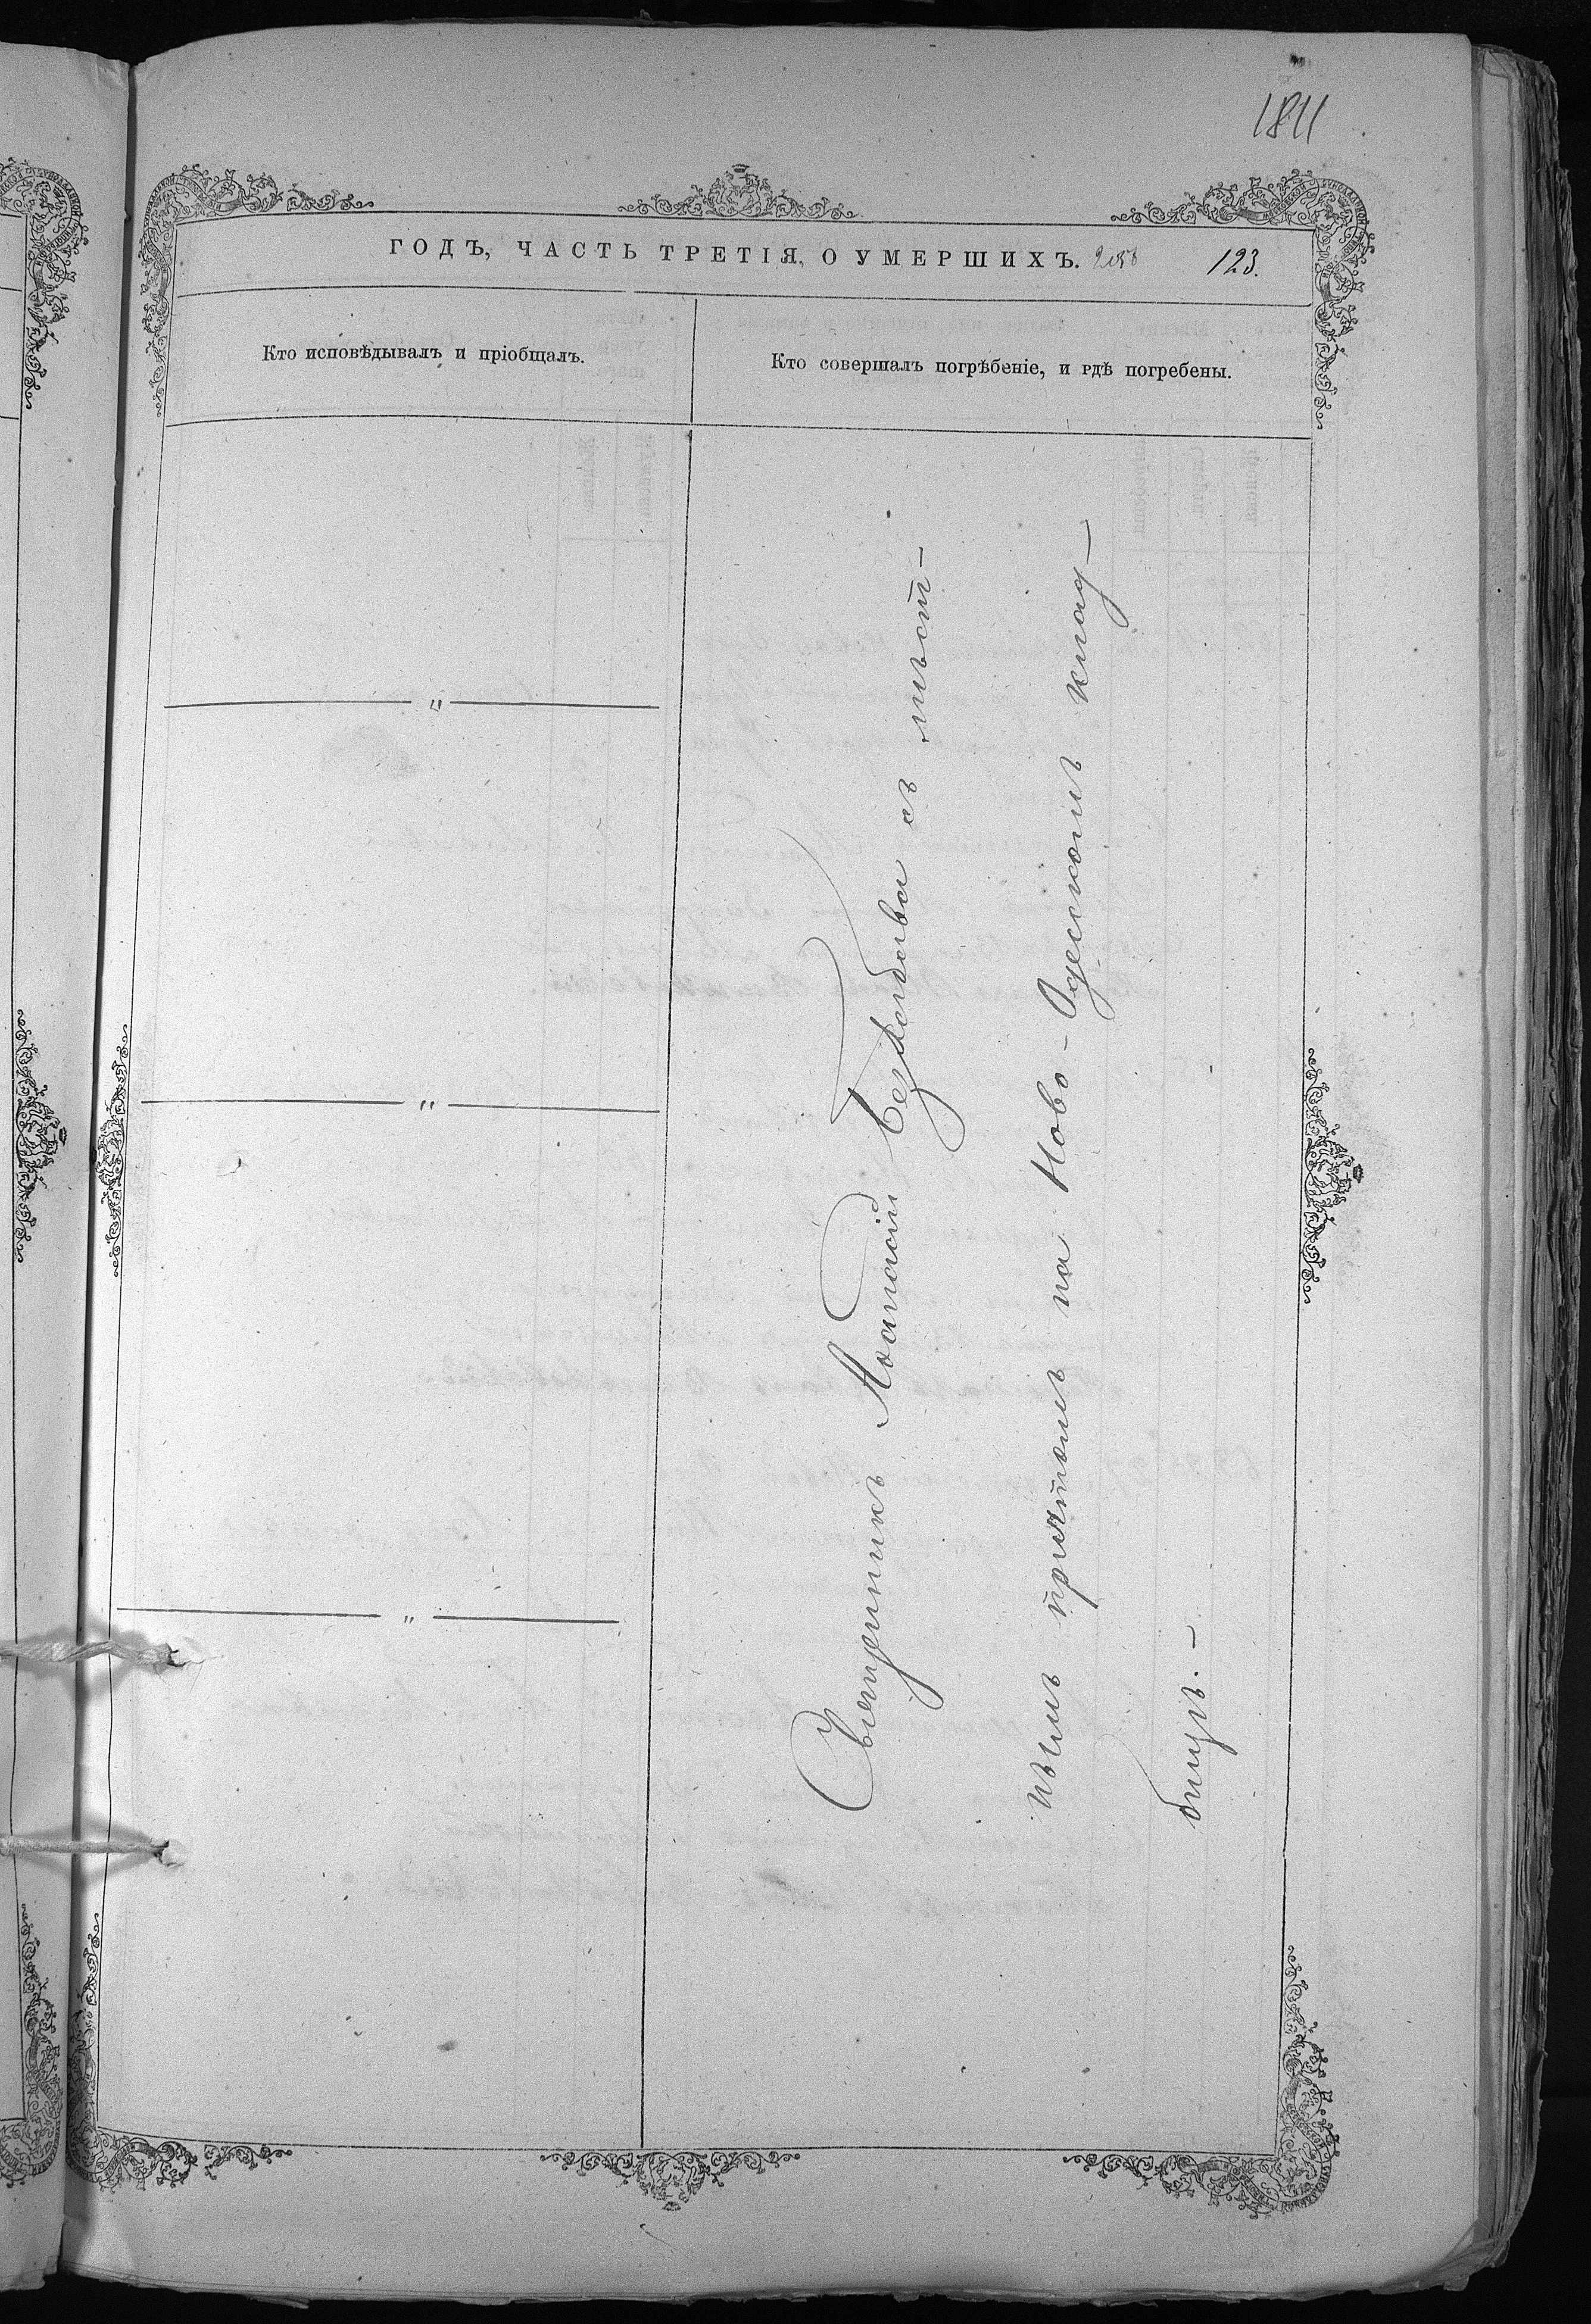 1811
ГОДЪ, ЧАСТЬ ТРЕТІЯ, О УМЕРШИХЪ.
123.
Кто исповѣдывалъ и пріобщалъ.
Кто совершалъ погрѣбеніе, и гдѣ погребены.
"
"
"
Священникъ Афанасій съ мѣст-
нымъ причтомъ на Ново-Одесскомъ клад-
бищѣ.-